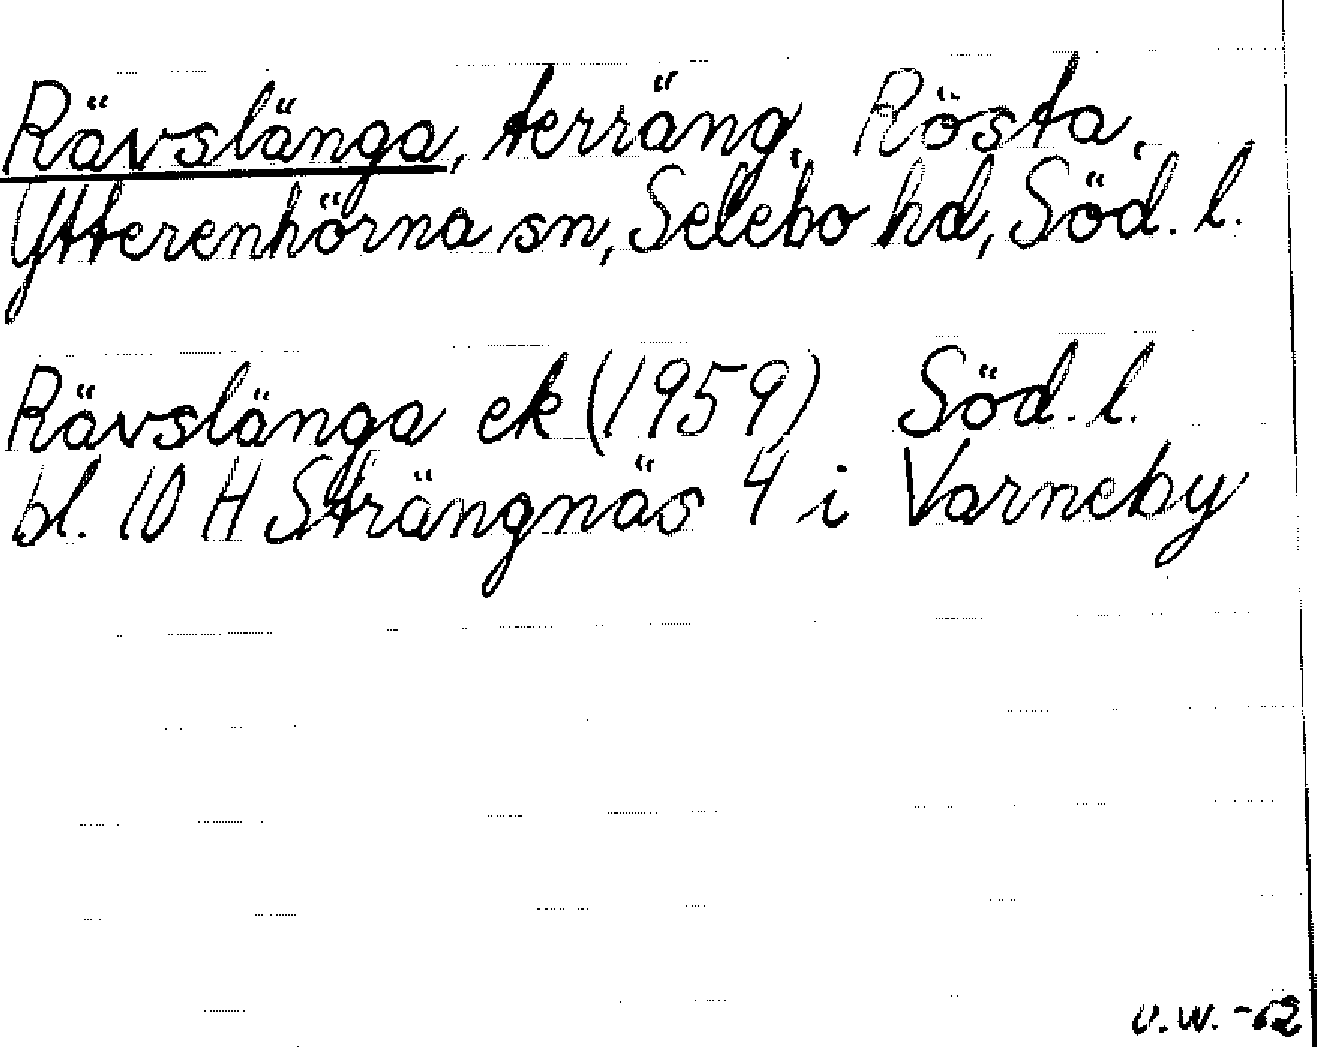 Rävslänga, terräng, Rösta,
Ytterenhörna sn, Selebo hd, Söd. l.
Rävslänga ek (1959) Söd. l.
bl. 10 H Strängnäs 4 i Varneby
U.W. -62